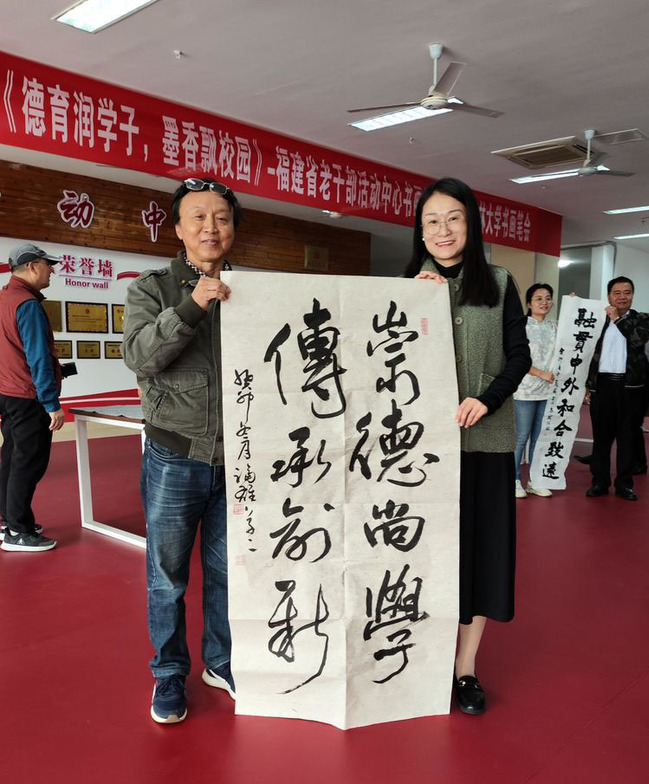 《德育润学子，墨香飘校园》-福建省老干部活动中心书画
技大学书画笔会
动中
荣誉墙
Honor wall
崇德尚學
傳承創新
癸卯
融貫中外和合致遠